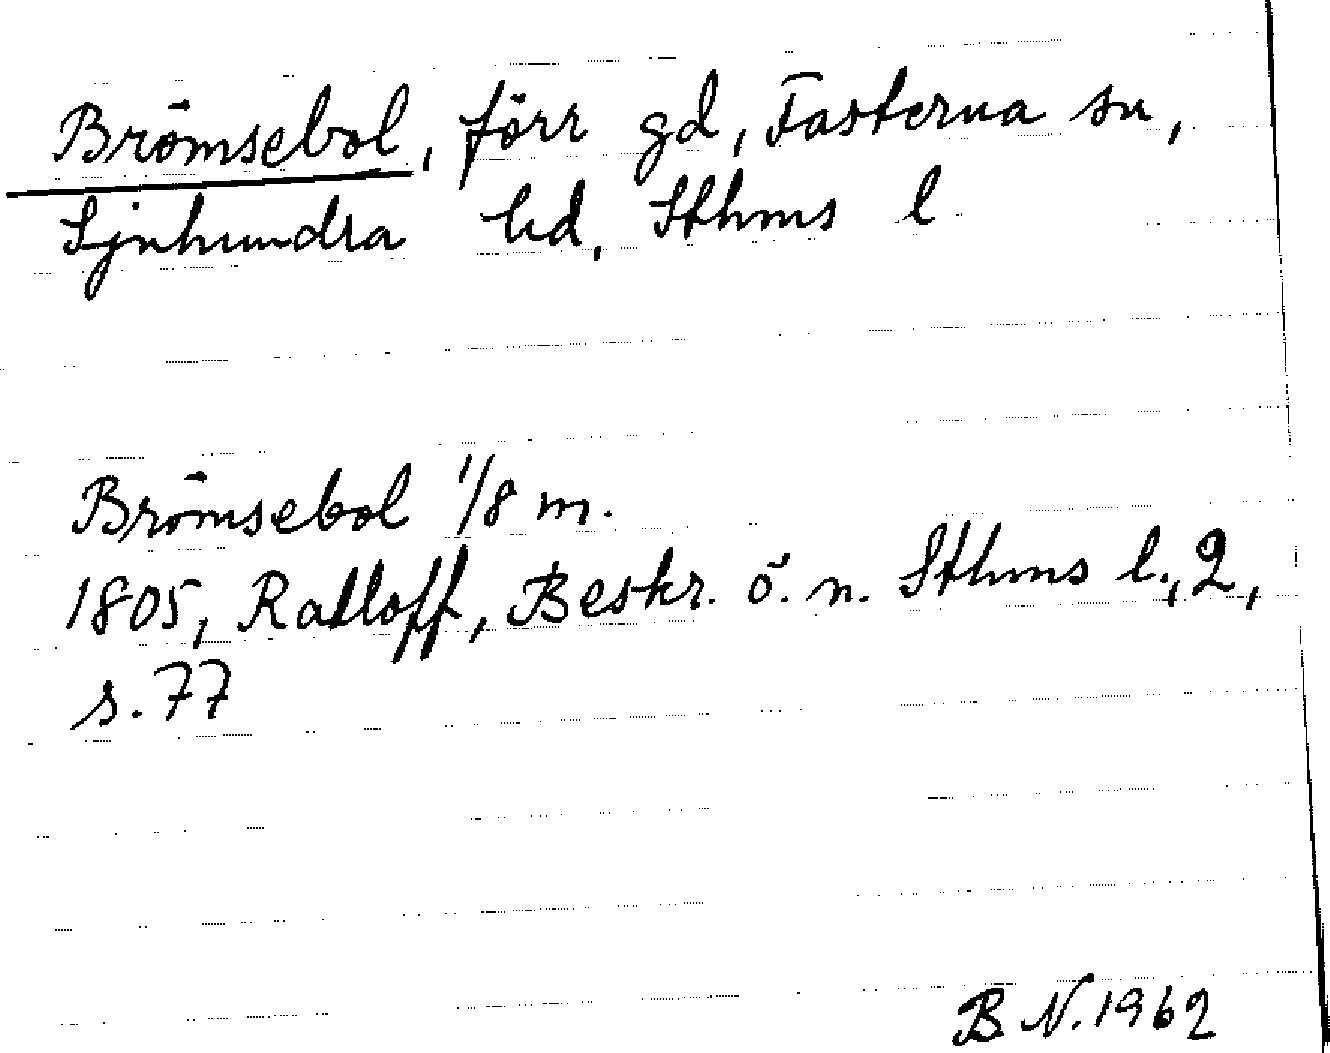 Brömsebol, förr gd, Fasterna sn,
Sjuhundra hd, Sthms l
Brömsebol 1/8 m.
1805, Radloff, Beskr. ö. n. Sthms l., 2,
s. 77
B N. 1962